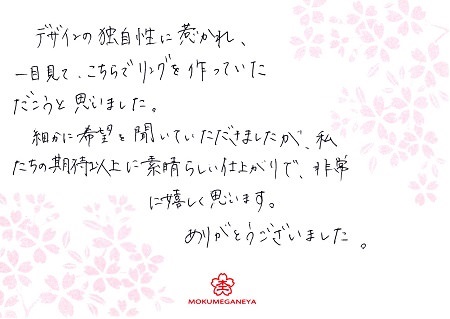 デザインの独自性に惹かれ、
一目見て、こちらでリングを作っていた
だこうと思いました。
細かに希望を聞いていただきましたが、私
たちの期待以上に素晴らしい仕上がりで、非常
に嬉しく思います。
ありがとうございました。
MOKUMEGANEYA